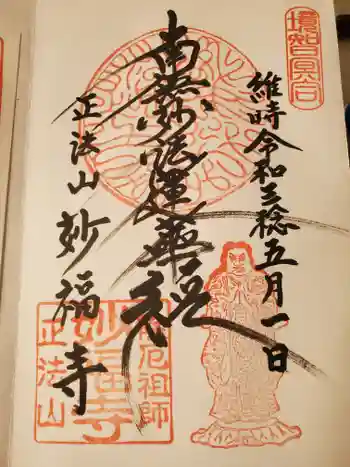 境智冥合
維時令和三稔五月一日
南無妙法蓮華経
正法山
妙福寺
厄祖師
妙福寺
正法山